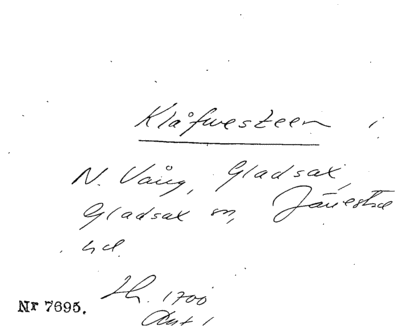 Klåfwesteen
N. Vång, Gladsax,
Gladsax sn, Järrestad
hd.
Lh. 1700
Akt 1
Nr 7695.